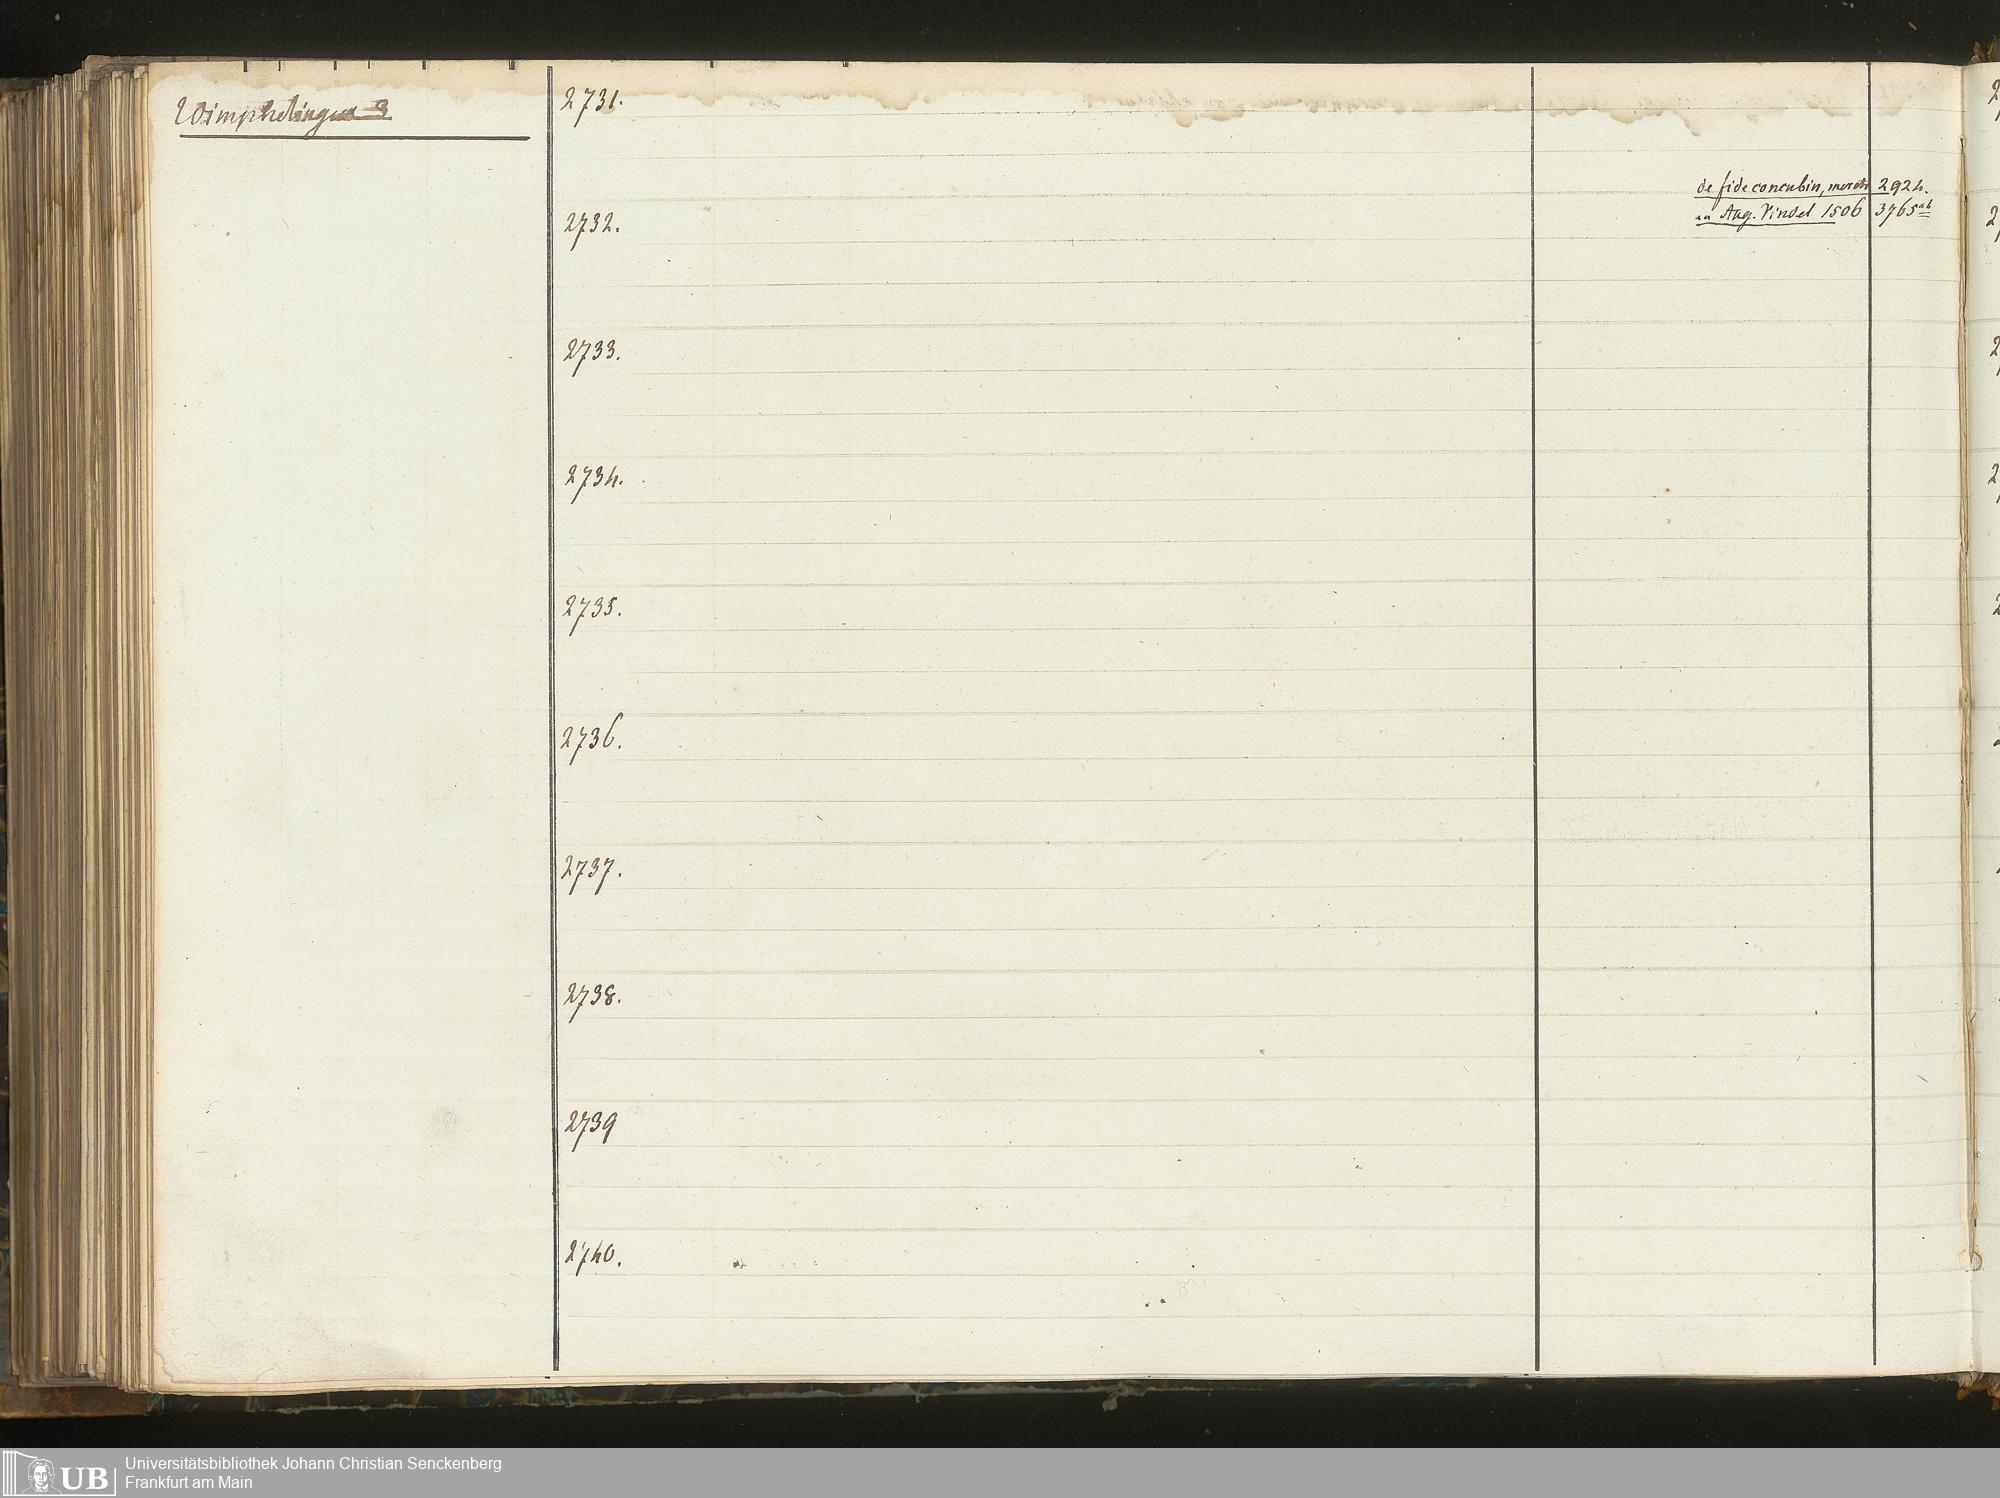 Wimphelingus 3
2731.
de fide concubin, meretr 2924.
Aug. Vindel 1506 3765 ab
2732.
2733.
2734.
2735.
2736.
2737.
2738.
2739
2740.
UB Universitätsbibliothek Johann Christian Senckenberg
Frankfurt am Main